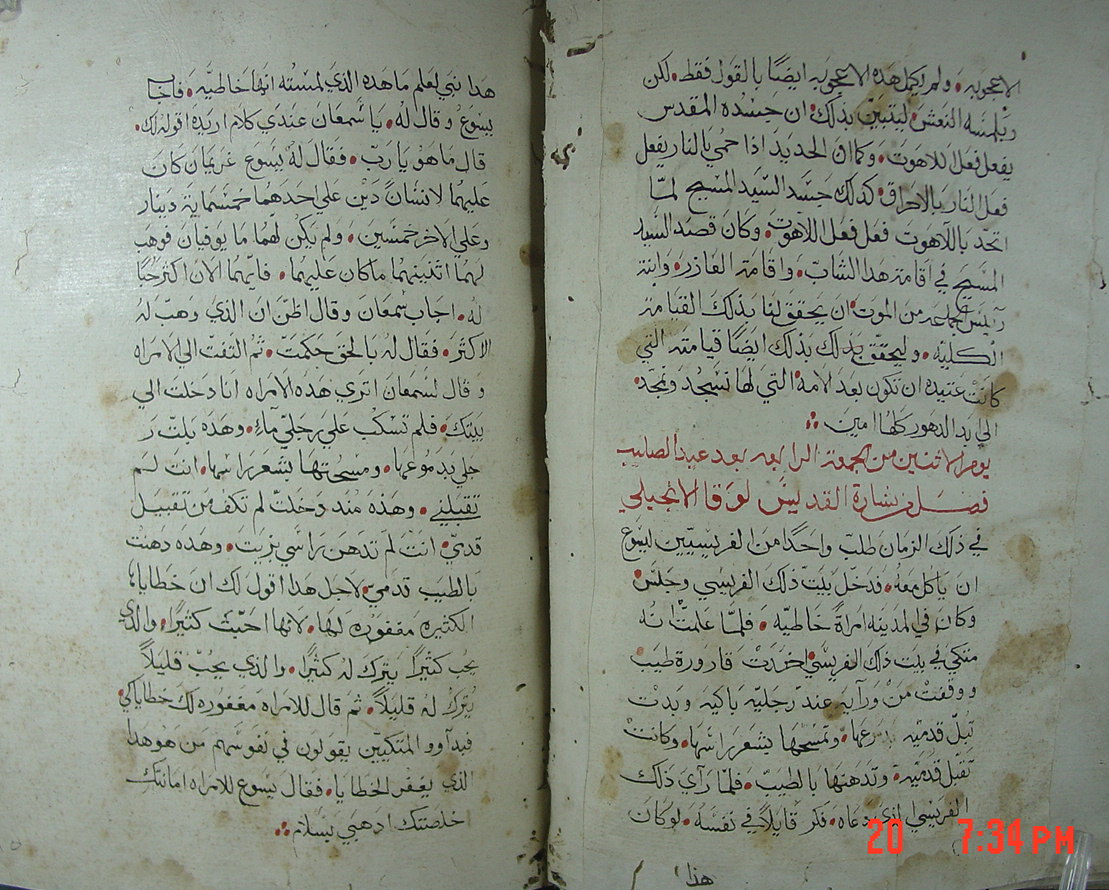 الاعجوبه ولم تكمل هذه الاعجوبه ايضًا بالقول فقط لكن
وبلمسه النعش ليتبين بذلك ان جسده المقدس
يفعل فعل اللاهوت وكما ان الحديد اذا حمي بالنار يفعل
فعل النار بالاحراق كذلك جسد السيد المسيح لما
اتحد باللاهوت فعل فعل اللاهوت وكان قصد السيد
المسيح في اقامة هذا الشاب واقامة العازر وابنة
رييس الجماعه من الموت ان يحقق لنا بذلك القيامة
الكليه وليحقق بذلك ايضًا قيامته التي
كانت عتيده ان تكون بعد لامه التي لها نسجد ونمجد
الي ابد الدهور كلها امين
يوم الاثنين من الجمعة الرابعه بعد عيد الصليب
فصل من بشارة القديس لوقا الانجيلي
في ذلك الزمان طلب واحدًا من الفريسيين ليسوع
ان ياكل معه فدخل بيت ذلك الفريسي وجلس
وكان في المدينه امراةً خاطيه فلما علمت انه
متكي في بيت ذلك الفريسي اخذت قارورة طيب
ووقفت من ورآيه عند رجليه باكيه وبدت
تبل قدميه بدموعها وتمسحها بشعر راسها وكانت
تقبل قدميه وتدهنها بالطيب فلما رآي ذلك
الفريسي الذي دعاه فكر قايلاً في نفسه لو كان
هذا
هذا نبي لعلم ما هذه الذي لمسته انها خاطيه فاجا
يسوع وقال له يا سمعان عندي كلام اريده اقوله لك
قال ما هو يا رب فقال له يسوع غريمان كان
عليهما لانسان دين علي احدهما خمسماية دينار
وعلي الاخر خمسين ولم يكن لهما ما يوفيان فوهب
لهما اثنينهما ما كان عليهما فايهما الان اكثر حبًا
له اجاب سمعان وقال اظن ان الذي وهب له
الاكثر فقال له بالحق حكمت ثم التفت الي الامراه
وقال لسمعان اتري هذه الامراه انا دخلت الي
بيتك فلم تسكب علي رجلي مآء وهذه بلت ر
جلي بدموعها ومسحتها بشعر راسها انت لم
تقبلني وهذه منذ دخلت لم تكف من تقبيل
قدمي انت لم تدهن راسي بزيت وهذه دهنت
بالطيب قدمي لاجل هذا اقول لك ان خطاياها
الكثيره مغفوره لها لانها احبت كثيرًا والذي
يحب كثيرًا يترك له كثيرًا والذي يحب قليلاً
يترك له قليلاً ثم قال للامراه مغفوره لك خطاياكي
فبدآوو المتكيين يقولون في نفوسهم من هو هذا
الذي يغفر الخطايا فقال يسوع للامراه امانتك
اخلصتك اذهبي بسلام
20 7:34 PM